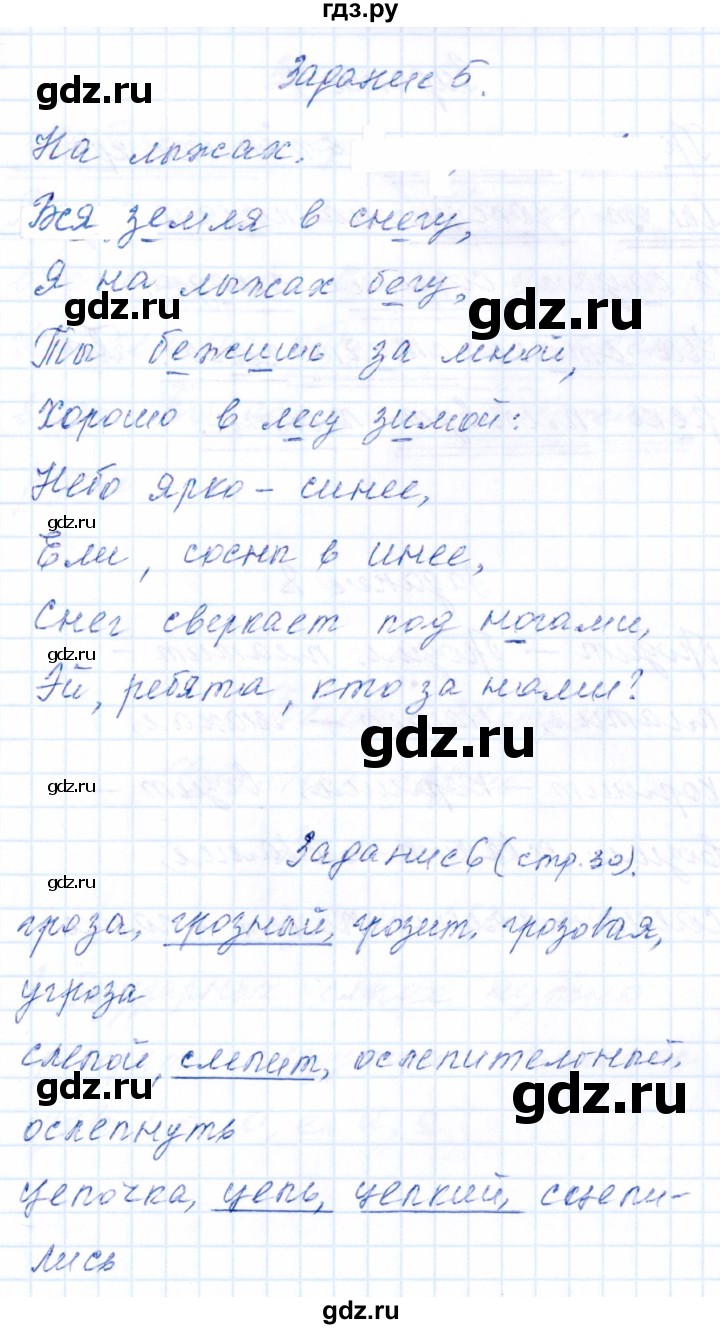 гдз.ру
Задание 5.
gdz.ru
На лыжах.
Вся земля в снегу,
gdz.ru
Я на лыжах бегу,
gdz.ru
gdz.ru
Ты бежишь за мной,
Хорошо в лесу зимой:
Небо ярко-синее,
gdz.ru
Ели, сосны в инее,
Снег сверкает под ногами,
gdz.ru
Эй, ребята, кто за нами?
gdz.ru
gdz.ru
Задание 6 (стр. 30).
gdz.ru
гроза, грозный, грозит, грозовая,
угроза
слепой, слепит, ослепительный,
gdz.ru
gdz.ru
ослепнуть
цепочка, цепь, цепкий, сцепи-
лись
gdz.ru